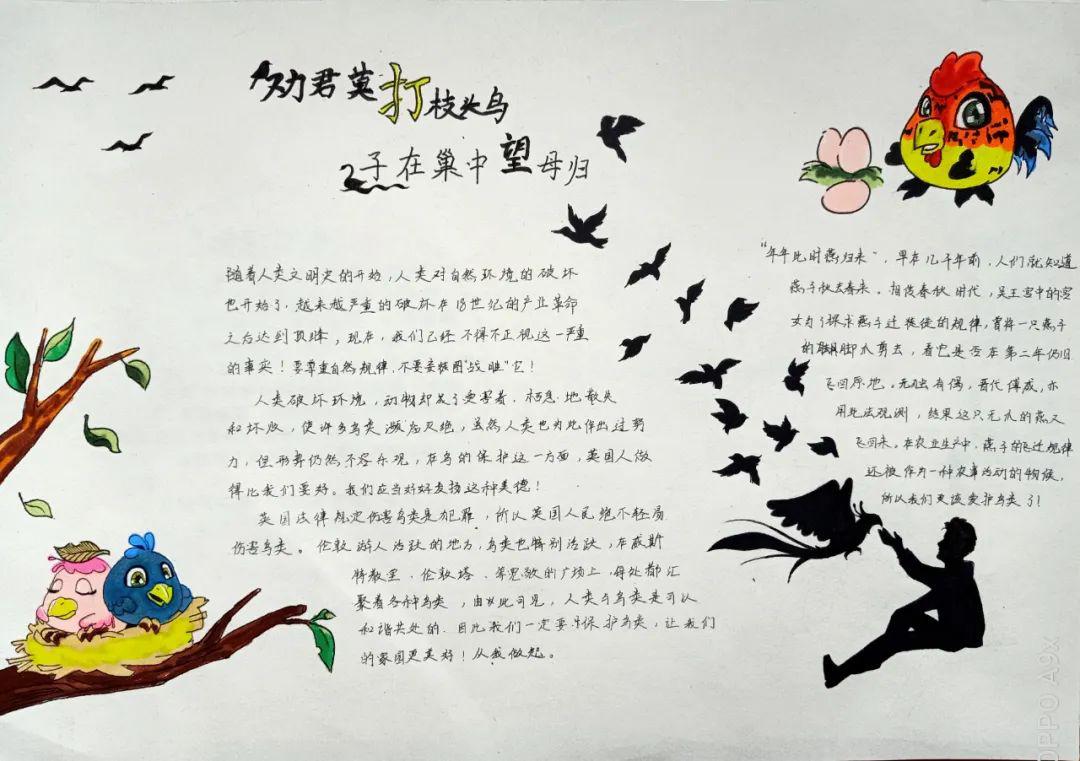 劝君莫打枝头鸟
子在巢中望母归
随着人类文明史的开始，人类对自然环境的破坏
也开始了，越来越严重的破坏在18世纪的产业革命
之后达到顶峰，现在，我们已经不得不正视这一严重
的事实！要尊重自然规律，不要妄图"战胜"它！
人类破坏环境，动物却成了受害者，栖息地散失
和坏败，使许多鸟类濒危灭绝，虽然人类也为此作出过努
力，但形势仍然不容乐观，在鸟的保护这一方面，英国人做
得比我们要好。我们应当好好发扬这种美德！
英国法律规定伤害鸟类是犯罪，所以英国人民绝不轻易
伤害鸟类。伦敦游人活跃的地方，鸟类也特别活跃，在威斯
特敏里、伦敦塔、等宽敞的广场上，每处都汇
聚着各种鸟类，由此可见，人类与鸟类是可以
和谐共处的。因此我们一定要保护鸟类，让我们
的家园更美好！从我做起。
"年年此时燕归来"，早在几千年前，人们就知道
燕子秋去春来。相传春秋时代，吴王宫中的宫
女为了探求燕子迁徙的规律，曾将一只燕子
的脚爪剪去，看它是否在第二年仍旧
飞回原地。无独有偶，晋代傅咸，亦
用此法观测，结果这只无爪的燕又
飞回来。在农业生产中，燕子的飞迁规律
还被作为一种农事活动的物候，
所以我们更该爱护鸟类了！
OPPO A9x